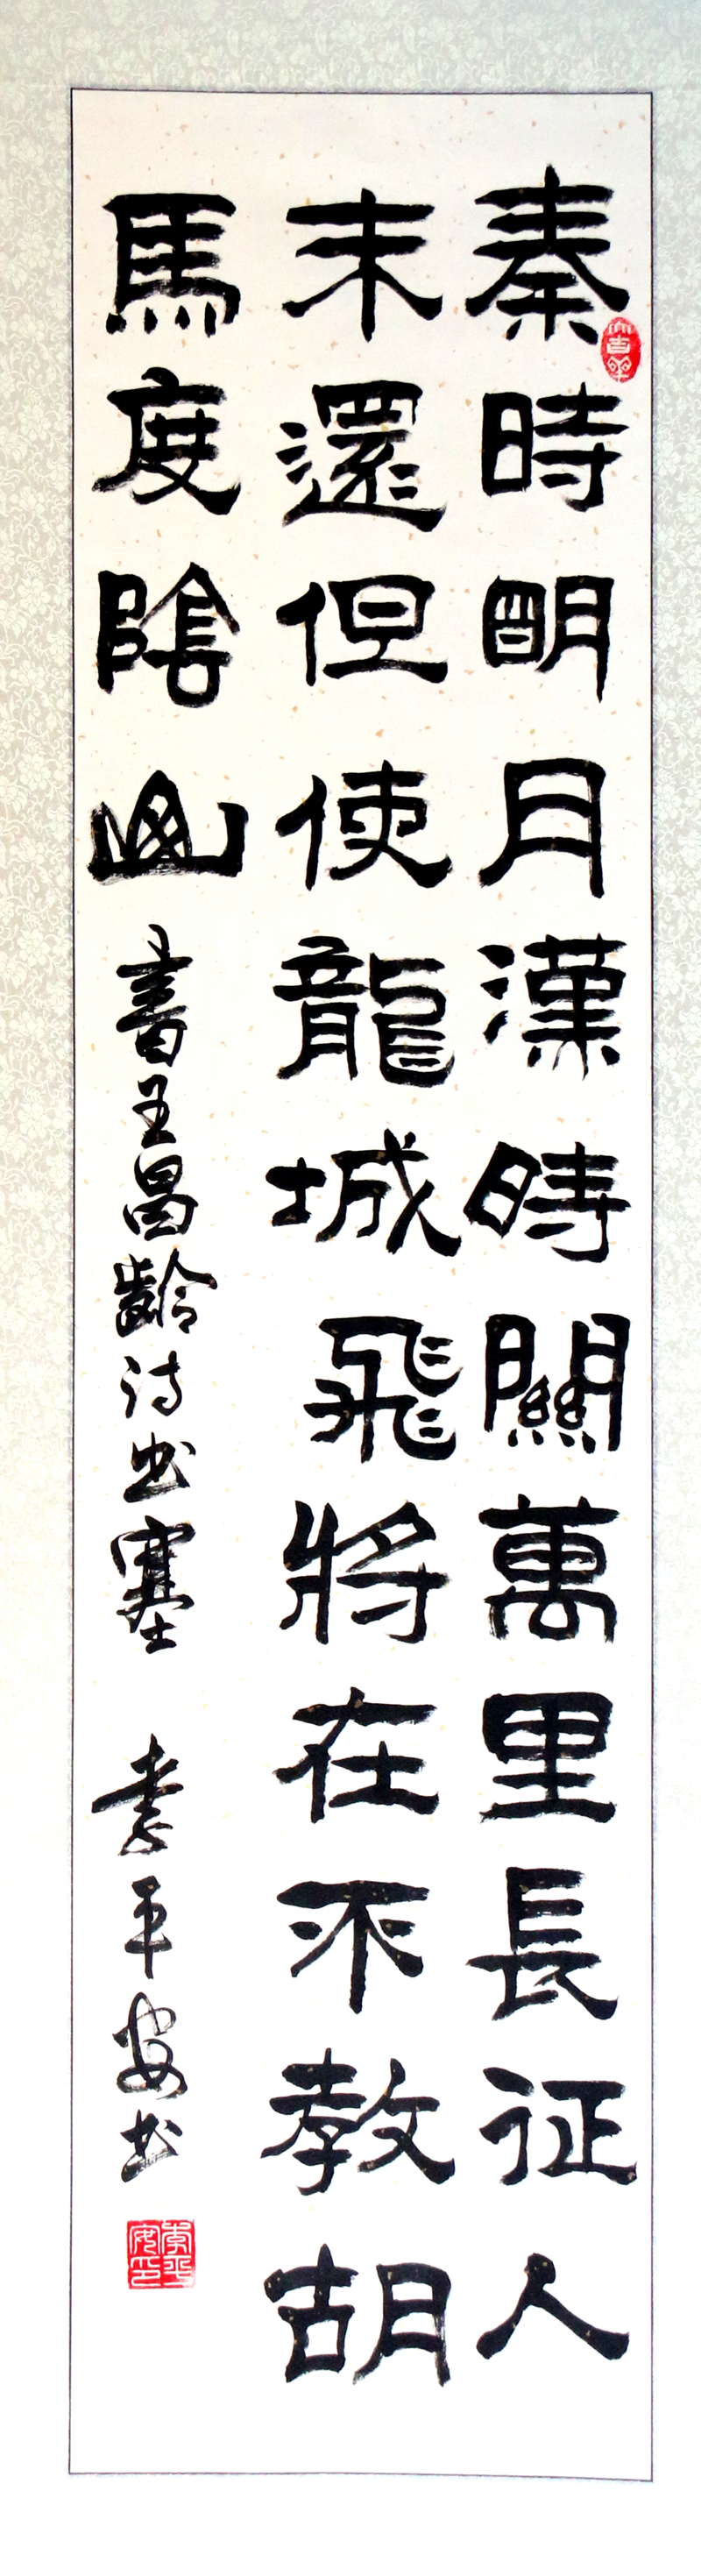 秦時明月漢時關萬里長征人
未還但使龍城飛將在不教胡
馬度陰山
書王昌齡诗出塞
平安书